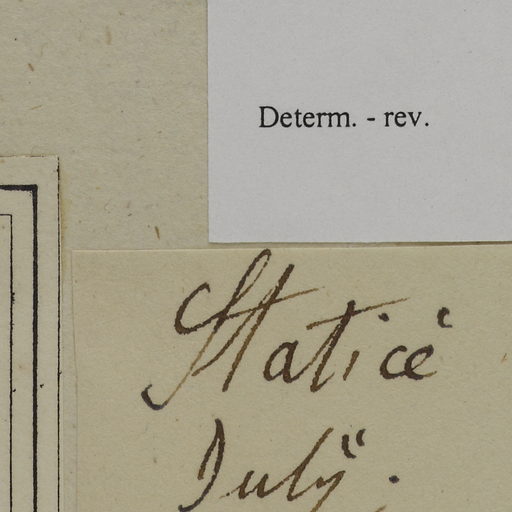 Determ. - rev.
Staticë
Julÿ.